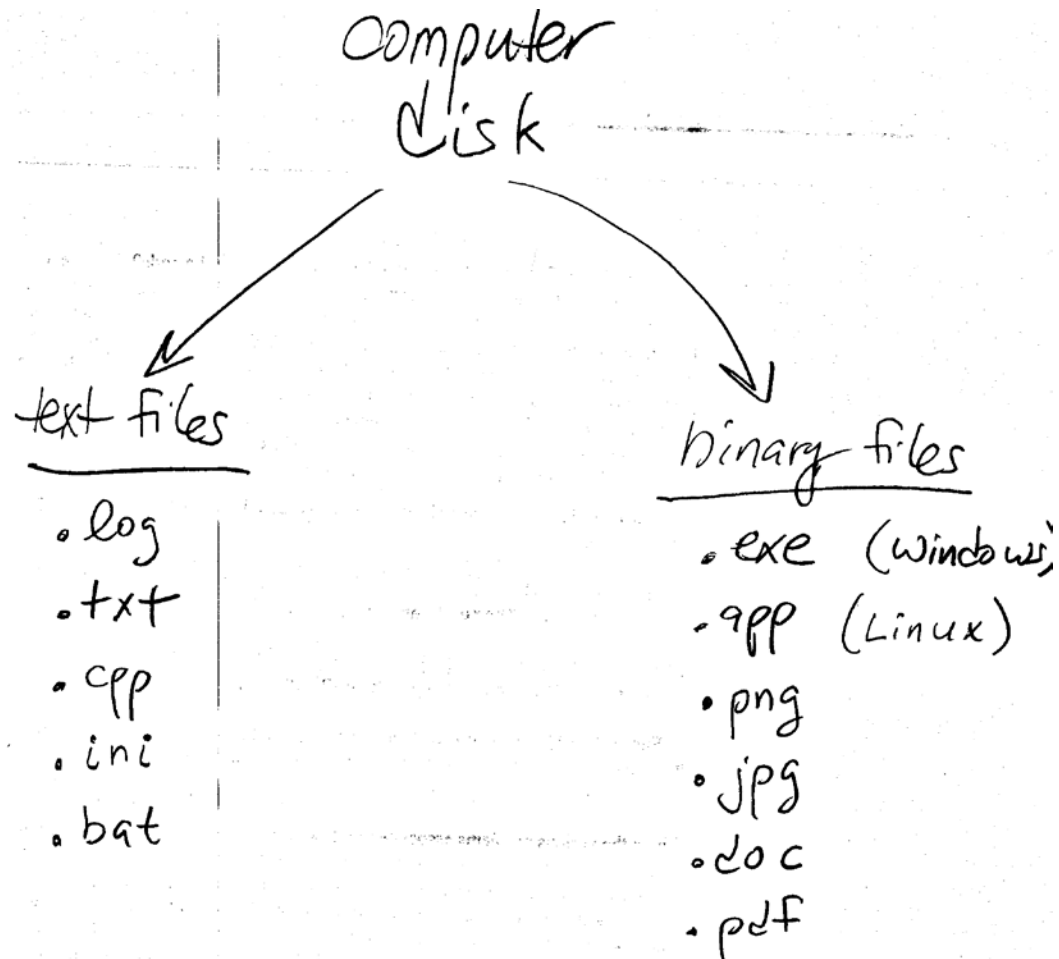 computer
disk
text files
.log
.txt
.cpp
.ini
.bat
binary files
.exe (windows)
.app (Linux)
.png
.jpg
.doc
.pdf